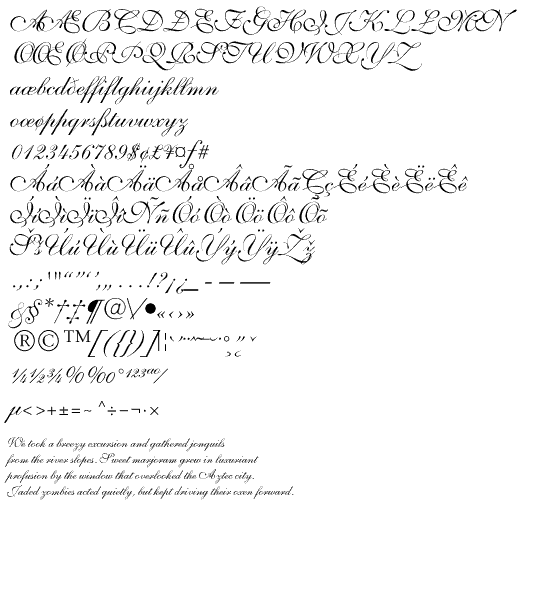 AÆBCDÐEFGHIJKLŁMN
OŒØPÞQRSTUVWXYZ
aæbcdðeffiflghiıjklłmn
oœøpþqrsßtuvwxyz
0123456789$¢£¥¤ƒ#
ÁáÀàÄäÅåÂâÃãÇçÉéÈèËëÊê
ÍíÌìÏïÎîÑñÓóÒòÖöÔôÕõ
ŠšÚúÙùÜüÛûÝýŸÿŽž
.,:;'"“”‘’‚„…!?¡¿_-–—
&§*†‡¶@\/•«‹›»
®©™[({})]|¦
¼½¾%‰°¹²³ªº/
µ<>+±=~^÷−¬·×
We took a breezy excursion and gathered jonquils
from the river slopes. Sweet marjoram grew in luxuriant
profusion by the window that overlooked the Aztec city.
Jaded zombies acted quietly, but kept driving their oxen forward.